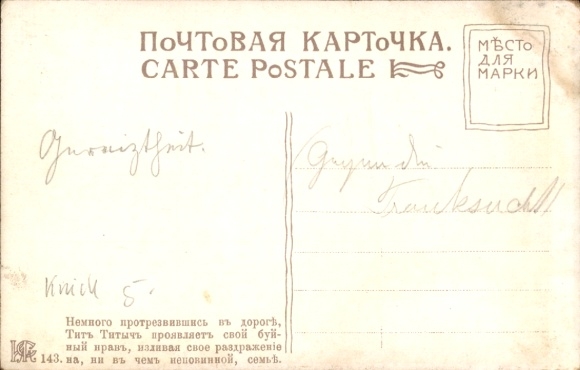 ПОЧТОВАЯ КАРТОЧКА.
CARTE POSTALE
МѢСТО
ДЛЯ
МАРКИ
Gereiztheit.
Gegen die
Trunksucht
5.
Немного протрезвившись въ дорогѣ,
Титъ Титычъ проявляетъ свой буй-
ный нравъ, изливая свое раздраженіе
143. на, ни въ чемъ неповинной, семьѣ.